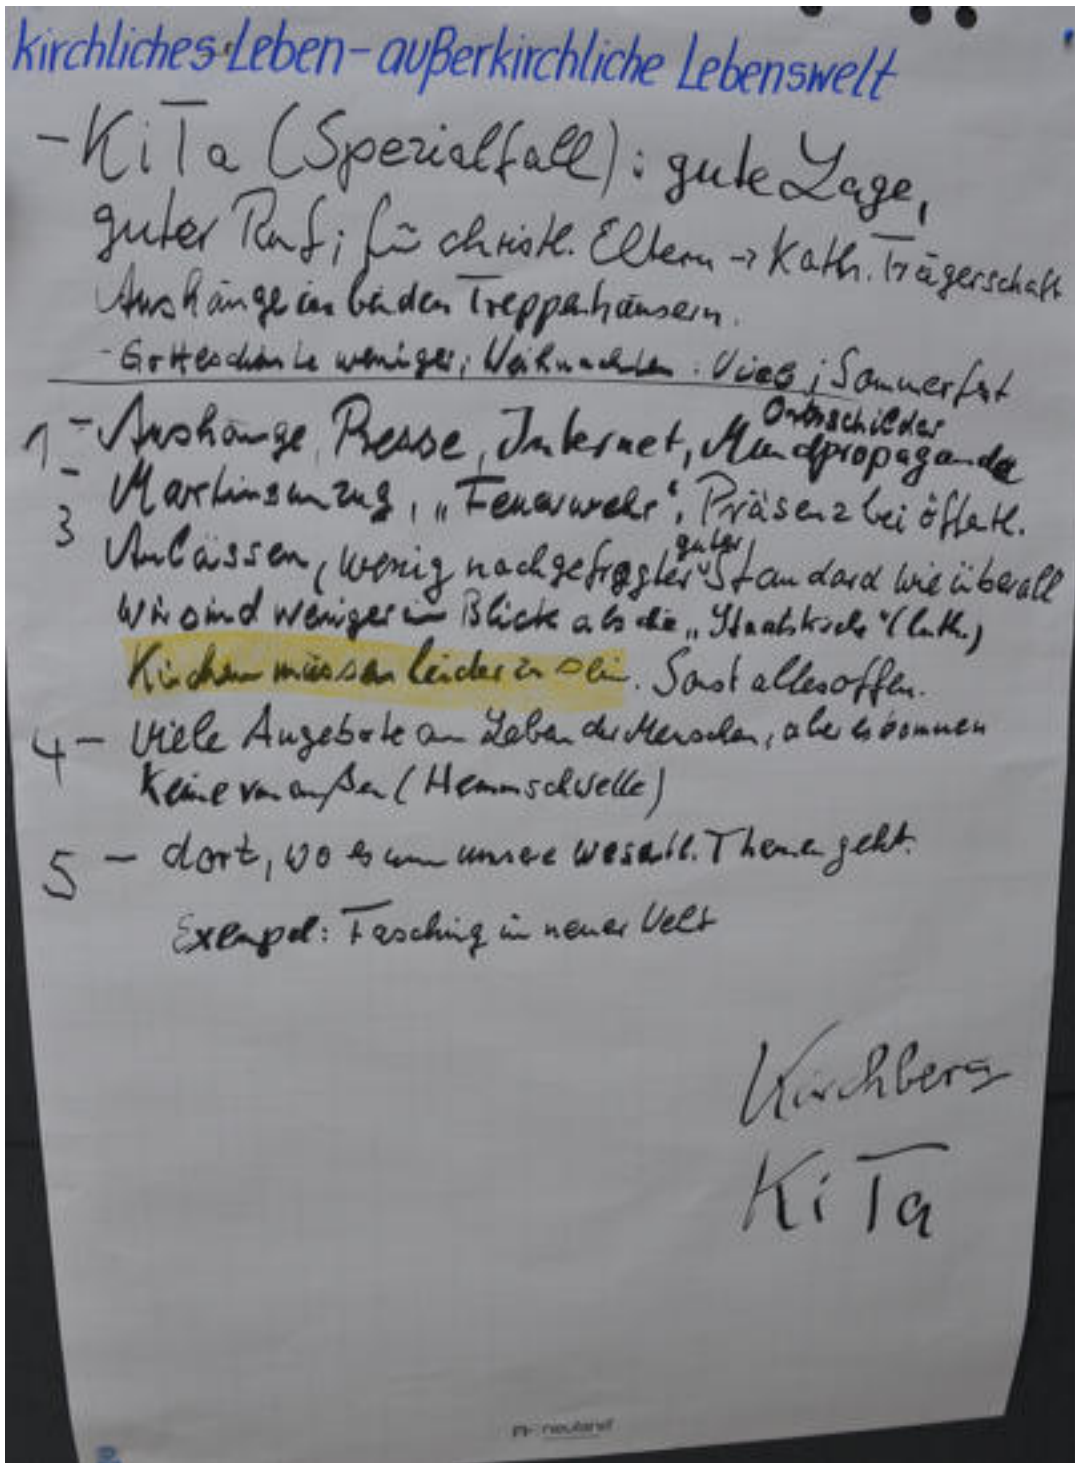 kirchliches Leben – außerkirchliche Lebenswelt
- KiTa (Spezialfall): gute Lage,
guter Ruf; für christl. Eltern → Kath. Trägerschaft
Aushänge in beiden Treppenhäusern.
- Gottesdienste weniger; Weihnachten: ; Sommerfest
Ortsschilder
1 - Aushänge, Presse, Internet, Mundpropaganda
3 - Martinsumzug, „Feuerwehr“, Präsenz bei öffentl.
guter
Anlässen, wenig nachgefragter Standard wie überall
Wir sind weniger im Blick als die „Staatskirche“ (luth.)
Kirchen müssen leider zu sein. Sonst alles offen.
4 - Viele Angebote am Leben der Menschen, aber es kommen
Keine von außen (Hemmschwelle)
5 - dort, wo es um unsere wesentl. Themen geht.
Exempel: Fasching in neuer Welt
Kirchberg
KiTa
neuland